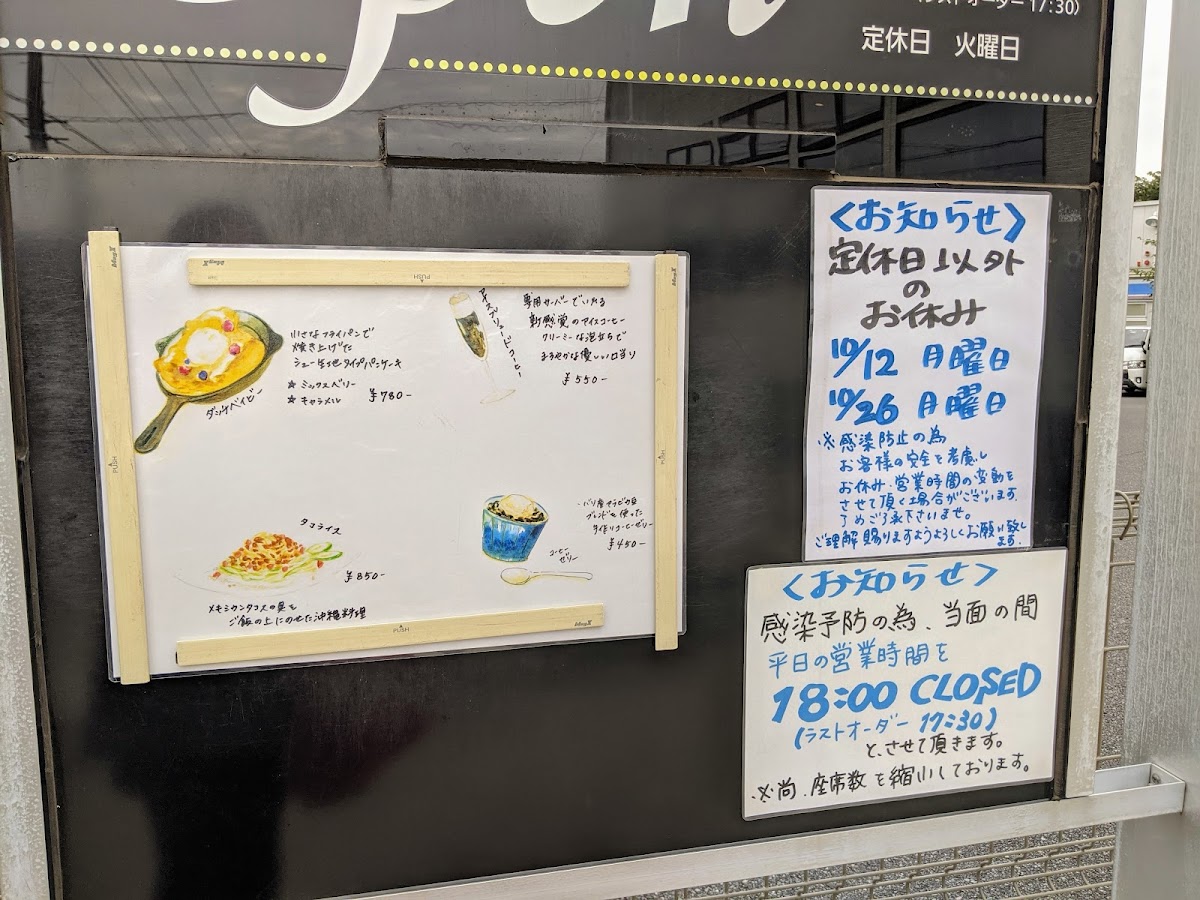 (ラストオーダー 17:30)
定休日 火曜日
小さなフライパンで
焼き上げた
シュー生地タイプパンケーキ
☆ ミックスベリー
☆ キャラメル ¥780-
ダッチベイビー
アイスブリュードコーヒー
専用サーバーでいれる
新感覚のアイスコーヒー
クリーミーな泡立ちで
まろやかな優しい口当り
¥550-
タコライス
¥850-
メキシカンタコスの具を
ご飯の上にのせた沖縄料理
バリ産アラビカ豆
ブレンドを使った
手作りコーヒーゼリー
¥450-
コーヒー
ゼリー
PUSH
PUSH
PUSH
PUSH
<お知らせ>
定休日以外
の
お休み
10/12 月曜日
10/26 月曜日
※感染防止の為
お客様の安全を考慮し
お休み・営業時間の変動を
させて頂く場合がございます。
了めご了承下さいませ。
ご理解賜りますようよろしくお願い致し
ます。
<お知らせ>
感染予防の為、当面の間
平日の営業時間を
18:00 CLOSED
(ラストオーダー 17:30)
と、させて頂きます。
※尚、座席数を縮小しております。